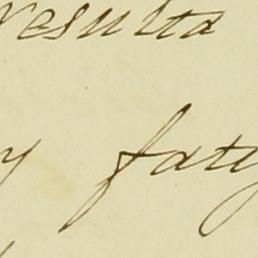 resulta
y fatig